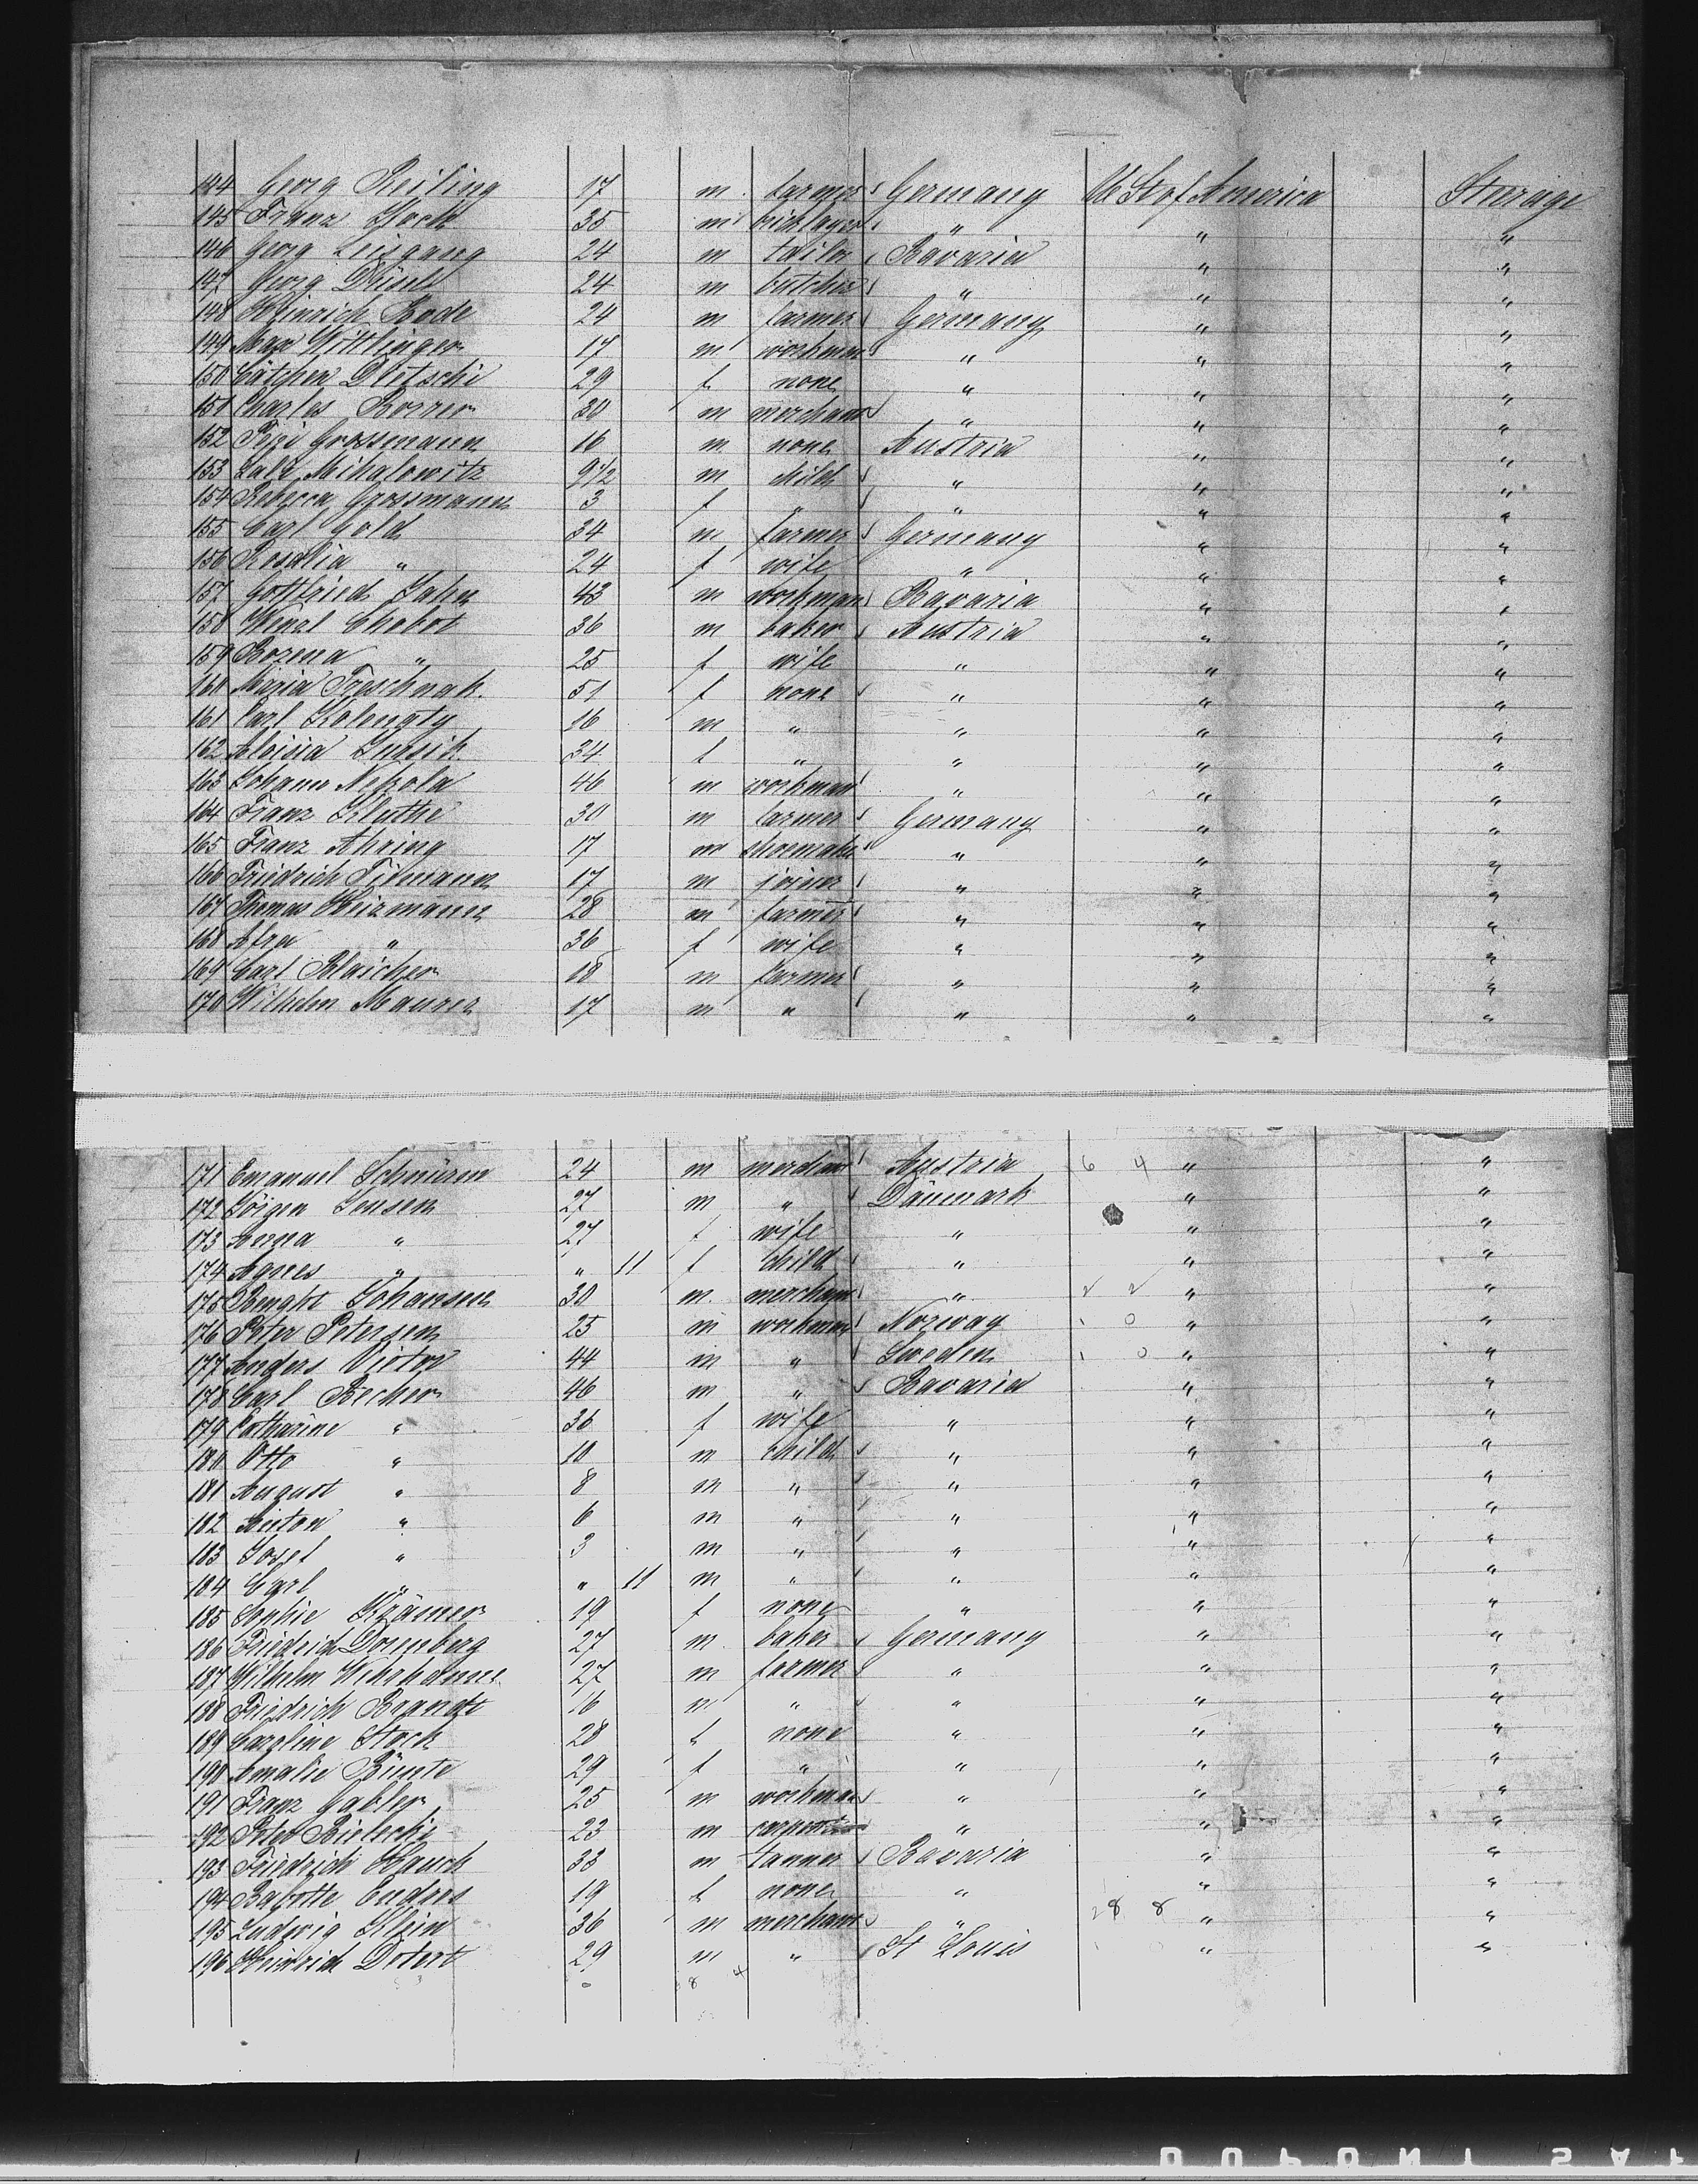 144 Georg Reiling 17 m farmer Germany U St of America Sterage
145 Franz Hock 35 m bricklayer " " "
146 Georg Leisgang 24 m tailor Bavaria " "
147 Georg 24 m butcher " " "
148 Heinrich Bode 24 m farmer Germany " "
149 Max Wittlinger 17 m workman " " "
150 Kätchen Dletschi 29 f none " " "
151 Charles Borrer 30 m merchant " " "
152 Pepi Grossmann 16 m none Austria " "
153 Mihalowitz 9 1/2 m child " " "
154 Rebecca Grossmann 3 f " " " "
155 Carl Gold 34 m farmer Germany " "
156 Rosalia " 24 f wife " " "
157 Gottfried Jahn 43 m workman Bavaria " "
158 Wenzl Chobot 36 m baker Austria " "
159 Bozena " 25 f wife " " "
160 Maria 51 f none " " "
161 Carl 16 m " " " "
162 Aloisia 34 f " " " "
163 Johann Nekola 46 m workman " " "
164 Franz Kluthe 30 m farmer Germany " "
165 Franz Ahring 17 m shoemaker " " "
166 Friedrich Tilmann 17 m joiner " " "
167 Thomas Heizmann 28 m farmer " " "
168 Afra " 36 f wife " " "
169 Carl Blaicher 18 m farmer " " "
170 Wilhelm Maurer 17 m " " " "
171 Emanuel Schnürer 24 m merchant Austria 6 4 " "
172 Jörgen Jensen 27 m " Dänmark " "
173 Anna " 27 f wife " " "
174 Agnes " " 11 f child " " "
175 Benght Johansen 30 m merchant " " "
176 Peter Petersen 25 m workman Norway 1 0 " "
177 Anders Victor 44 m " Sweden 1 0 " "
178 Carl Becher 46 m " Bavaria " "
179 Catharine " 36 f wife " " "
180 Otto " 10 m child " " "
181 August " 8 m " " " "
182 Anton " 6 m " " " "
183 Josef " 3 m " " " "
184 Carl " " 11 m " " " "
185 Sophie Krämer 19 f none " " "
186 Friedrich Dornberg 27 m baker Germany " "
187 Wilhelm Wehrhanne 27 m farmer " " "
188 Friedrich Brandt 16 m " " " "
189 Caroline Stock 28 f none " " "
190 Amalie Bünte 29 f " " " "
191 Franz Gabler 25 m workman " " "
192 Peter Bielecki 23 m carpenter " " "
193 Friedrich Hauck 33 m tanner Bavaria " "
194 Babette Endres 19 f none " " "
195 Ludwig Klein 36 m merchant " 28 8 " "
196 Heinrich Detert 29 m " St Louis " "
8 4